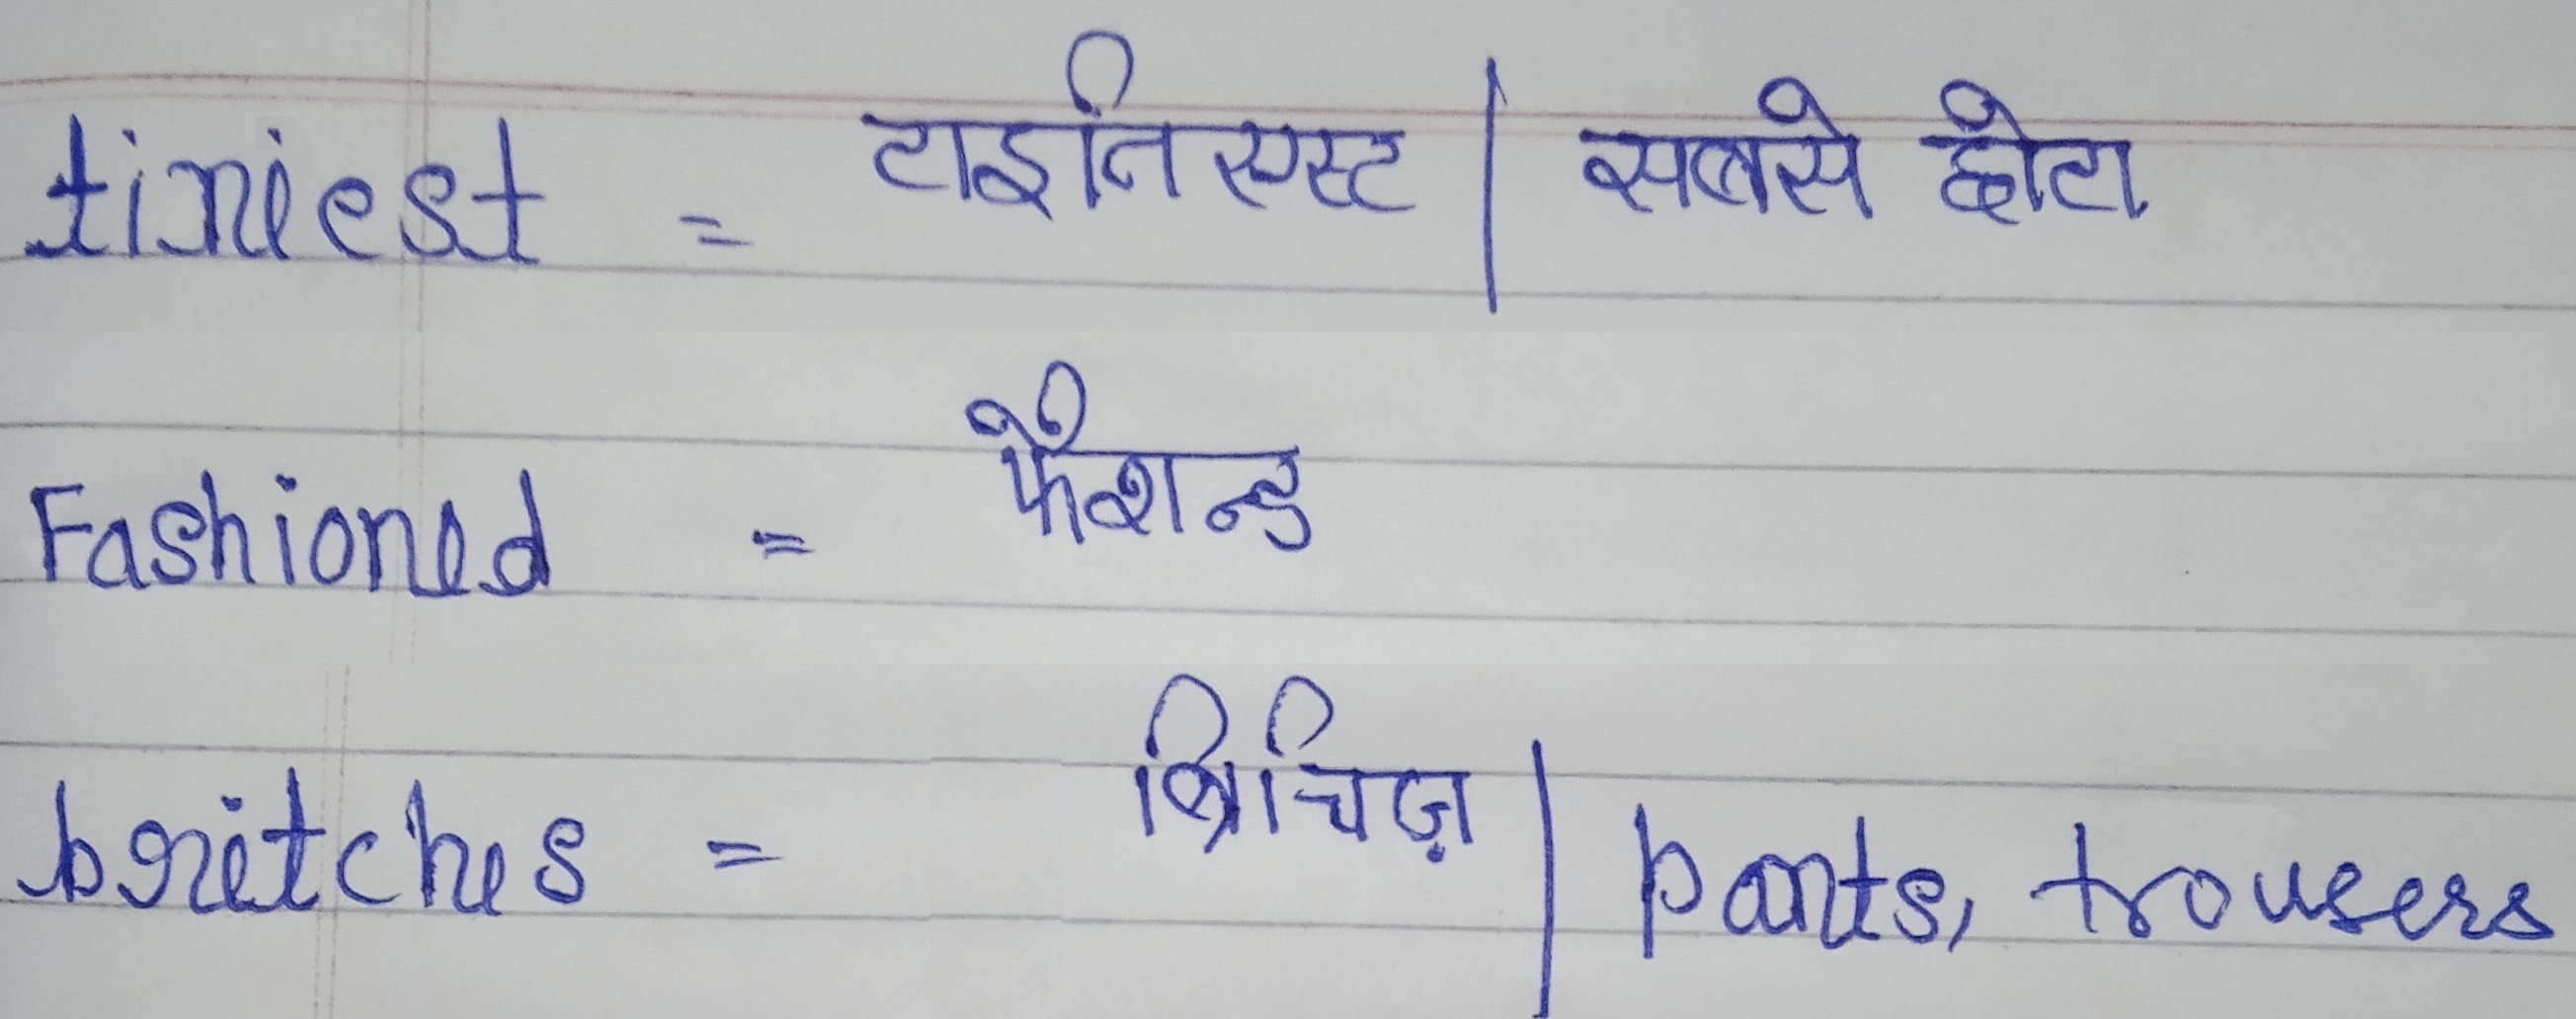 tiniest = टाइनिएस्ट | सबसे छोटा
Fashioned = फैशन्ड
britches = ब्रिचिज़ | pants, trousers